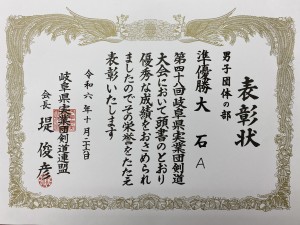 表彰状
男子団体の部
準優勝 大石A
第四十八回岐阜県実業団剣道
大会において頭書のとおり
優秀な成績をおさめられ
ましたのでその栄誉をたたえ
表彰いたします
令和六年十月二十六日
岐阜県実業団剣道連盟
会長 堤俊彦